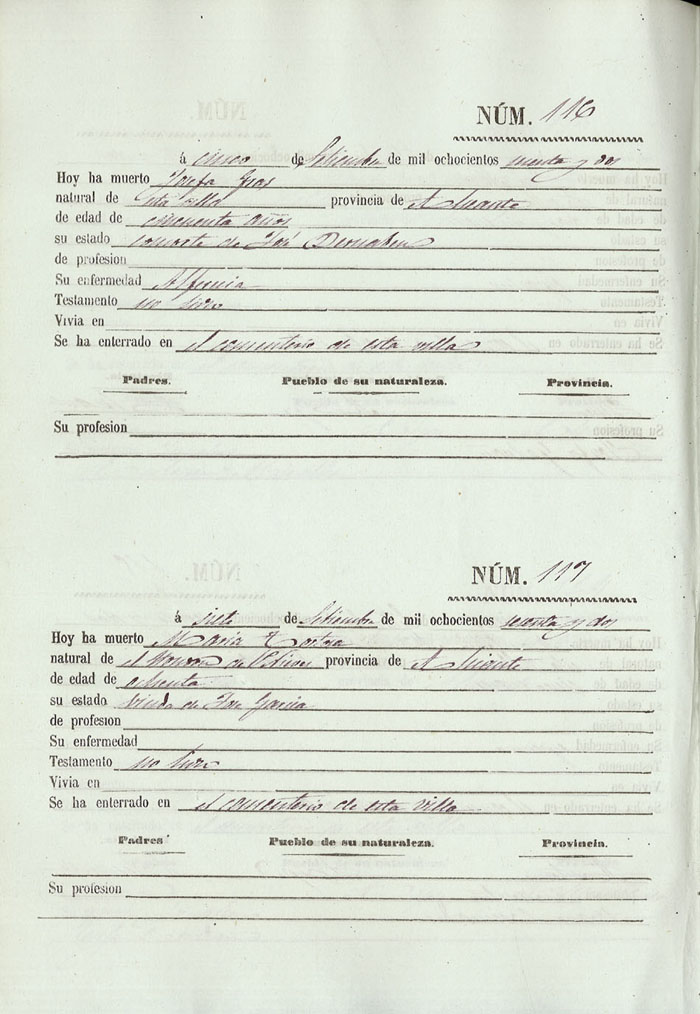 NÚM. 116
á cinco de Setiembre de mil ochocientos sesenta y dos
Hoy ha muerto Josefa Gras
natural de esta villa provincia de Alicante
de edad de cincuenta años
su estado consorte de José Bernabeu
de profesion
Su enfermedad
Testamento no hizo
Vivia en
Se ha enterrado en el cementerio de esta villa
Padres. Pueblo de su naturaleza. Provincia.
Su profesion
NÚM. 117
á siete de Setiembre de mil ochocientos sesenta y dos
Hoy ha muerto Maria
natural de el provincia de Alicante
de edad de ochenta
su estado viuda de José Garcia
de profesion
Su enfermedad
Testamento no hizo
Vivia en
Se ha enterrado en el cementerio de esta villa
Padres Pueblo de su naturaleza. Provincia.
Su profesion